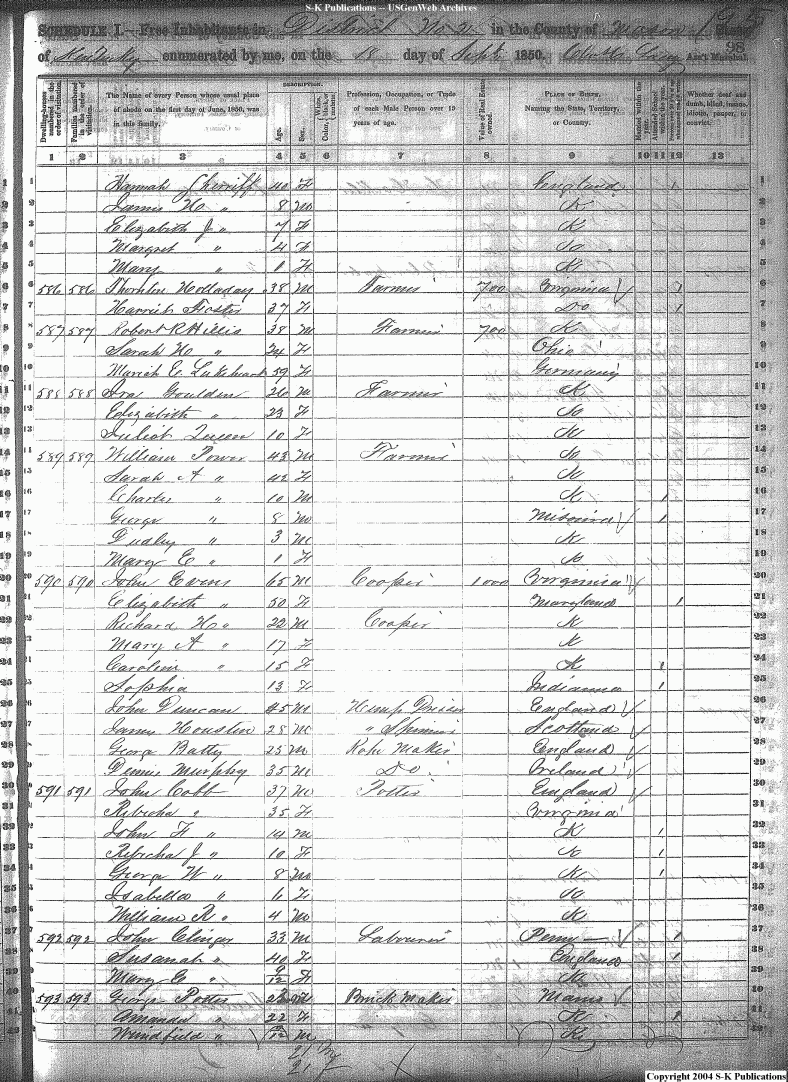 S-K Publications -- USGenWeb Archives
SCHEDULE I.—Free Inhabitants in District No 2 in the County of Mason State
of Kentucky enumerated by me, on the 18 day of Sept 1850. Ass't Marshal.
98
DESCRIPTION.
Dwelling-houses numbered in the order of visitation.
Families numbered in the order of visitation.
The Name of every Person whose usual place of abode on the first day of June, 1850, was in this family.
Age.
Sex.
Color, White, black, or mulatto.
Profession, Occupation, or Trade of each Male Person over 15 years of age.
Value of Real Estate owned.
PLACE OF BIRTH. Naming the State, Territory, or Country.
Married within the year.
Attended School within the year.
Whether deaf and dumb, blind, insane, idiotic, pauper, or convict.
1 2 3 4 5 6 7 8 9 10 11 12 13
1 Hannah Sherriff 40 F England 1 1
2 James H " 8 M K 2
3 Elizabeth J " 7 F K 3
4 Margret " 4 F Do 4
5 Mary " 1 F K 5
6 586 586 Thornton Holladay 38 M Farmer 700 Virginia 1 6
7 Harriet 37 F Do 1 7
8 587 587 Robert R Hillis 38 M Farmer 700 K 8
9 Sarah H " 24 F Ohio 9
10 Mariah E 59 F Germany 10
11 588 588 Ira Goulden 26 M Farmer K 11
12 Elizabeth " 23 F Do 12
13 Juliet Queen 10 F K 13
14 589 589 William Power 43 M Farmer Do 14
15 Sarah A " 42 F K 15
16 Charles " 10 M K 1 16
17 George " 8 M Missouri 1 17
18 Dudley " 3 M K 18
19 Mary E " 1 F Do 19
20 590 590 John Evens 65 M Cooper 1000 Virginia 20
21 Elizabeth " 50 F Maryland 1 21
22 Richard H " 22 M Cooper K 22
23 Mary A " 17 F K 23
24 Carolin " 15 F K 1 24
25 Sophia 13 F Indianna 1 25
26 John Duncan 45 M Hemp England 26
27 James Houston 28 M " Spinner Scotland 27
28 George Batty 25 M Rope Maker England 28
29 Dennis Murphy 35 M Do Ireland 29
30 591 591 John Cobb 37 M Potter England 30
31 Rebecha " 35 F Virginia 31
32 John F " 14 M K 1 32
33 Rebecha J " 10 F K 1 33
34 George W " 8 M K 1 34
35 Isabella " 6 F Do 35
36 William R " 4 M K 36
37 592 592 John Clinger 33 M Labourer Penn 1 37
38 Susanah " 40 F England 1 38
39 Mary E " 9/12 F K 39
40 593 593 George Porter 23 M Brick Maker 40
41 Amanda " 22 F K 1 41
42 Windfield " M K 42
21 M
21 F
Copyright 2004 S-K Publications